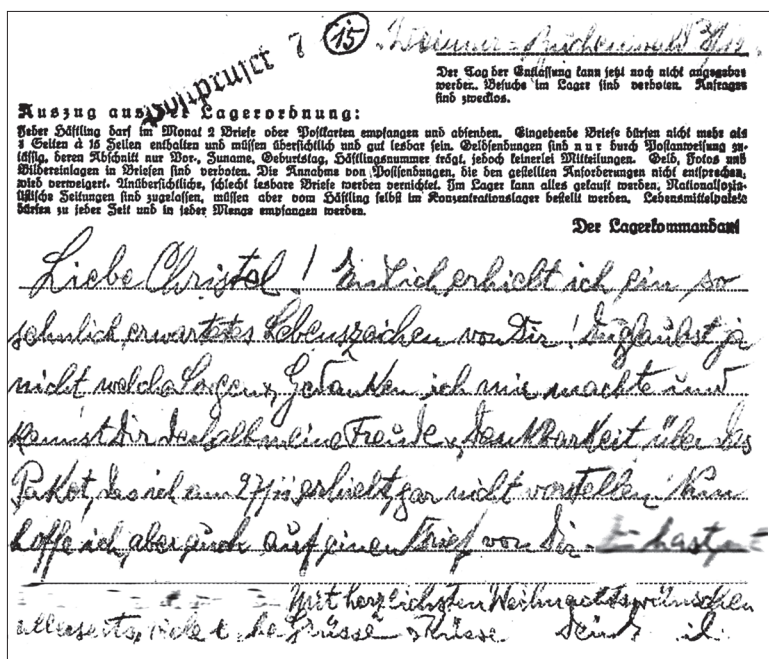 Postprüfer 7 15 Weimar-Buchenwald
Der Tag der Entlassung kann jetzt noch nicht angegeben
werden. Besuche im Lager sind verboten. Anfragen
sind zwecklos.
Auszug aus der Lagerordnung:
Jeder Häftling darf im Monat 2 Briefe oder Postkarten empfangen und absenden. Eingehende Briefe dürfen nicht mehr als
4 Seiten à 15 Zeilen enthalten und müssen übersichtlich und gut lesbar sein. Geldsendungen sind nur durch Postanweisung zu-
lässig, deren Abschnitt nur Vor-, Zuname, Geburtstag, Häftlingsnummer trägt, jedoch keinerlei Mitteilungen. Geld, Fotos und
Bildereinlagen in Briefen sind verboten. Die Annahme von Postsendungen, die den gestellten Anforderungen nicht entsprechen,
wird verweigert. Unübersichtliche, schlecht lesbare Briefe werden vernichtet. Im Lager kann alles gekauft werden. Nationalsozia-
listische Zeitungen sind zugelassen, müssen aber vom Häftling selbst im Konzentrationslager bestellt werden. Lebensmittelpakete
dürfen zu jeder Zeit und in jeder Menge empfangen werden.
Der Lagerkommandant
Liebe Christel! Endlich erhielt ich ein so
sehnlich erwartetes Lebenszeichen von Dir! Du glaubst ja
nicht welche Sorgen u. Gedanken ich mir machte und
kannst Dir deshalb meine Freude u. Dankbarkeit über das
Paket, das ich am 27/11 erhielt, gar nicht vorstellen. Nun
hoffe ich aber auch auf einen Brief von Dir. hast
Mit herzlichsten Weihnachtswünschen
allerseits, viele Grüsse Küsse